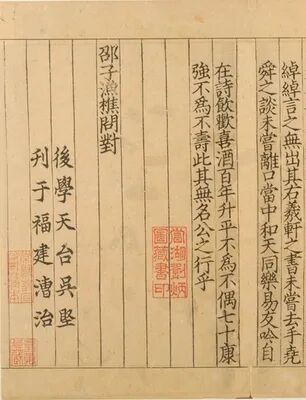 綽綽言之無出其右羲軒之書未嘗去手堯
舜之談未嘗離口當中和天同樂易友吟自
在詩飲歡喜酒百年升平不為不偶七十康
強不為不壽此其無名公之行乎
邵子漁樵問對
後學天台吳堅
刊于福建漕治